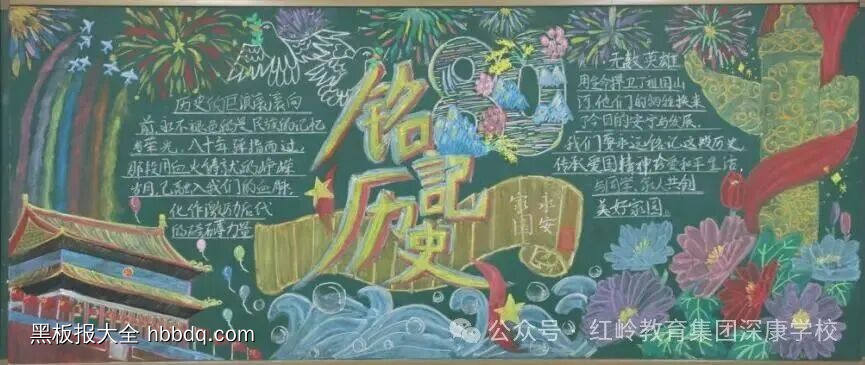 历史的巨浪滚滚向
前,永不褪色的是民族的记忆
与荣光,八十年弹指而过,
那段用血火铸就的峥嵘
岁月,已融入我们的血脉,
化作激励后代
的磅礴力量
80
铭記
历史
永安
家国
无数英雄
用生命捍卫了祖国山
河,他们的牺牲换来
了今日的安宁与发展,
我们要永远铭记这段历史,
传承爱国精神珍爱和平生活
与同学、家人共创
美好家园。
黑板报大全 hbbdq.com
公众号·红岭教育集团深康学校